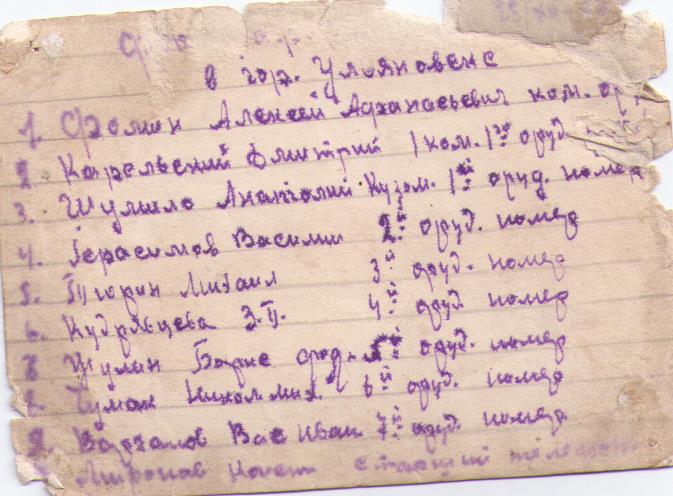 в гор. Ульяновске
1. Фомин Алексей Афанасьевич ком. ор
2. Карельский Дмитрий 1 ком. 1го оруд
3. Шумило Анатолий Кузьм. 1й оруд. номер
4. Герасимов Василий 2й оруд. номер
5. Тюрин Михаил 3й оруд. номер
6. Кудрявцева З.П. 4й оруд. номер
7 Жулин Борис 5й оруд. номер
8. Чумак Никол. мих. 6й оруд. номер
9. Варламов Вас Иван 7й оруд. номер
Миронов Конст Старший телефон